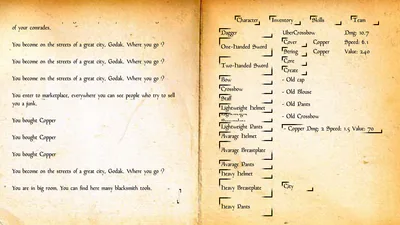 of your comrades.
You become on the streets of a great city, Godak. Where you go ?
You become on the streets of a great city, Godak. Where you go ?
You become on the streets of a great city, Godak. Where you go ?
You enter to marketplace, everywhere you can see people who try to sell
you a junk.
You bought Copper
You bought Copper
You bought Copper
You become on the streets of a great city, Godak. Where you go ?
You are in big room. You can find here many blacksmith tools.
Character Inventory Skills Team
Dagger
One-Handed Sword
Two-Handed Sword
Bow
Crossbow
Staff
Lightweight Helmet
Lightweight Pants
Avarage Helmet
Avarage Breastplate
Avarage Pants
Heavy Helmet
Heavy Breastplate
Heavy Pants
UberCrossbow Dmg: 10.7
Cover Copper Speed: 6.1
String Copper Value: 240
Core
Create
- Old cap
- Old Blouse
- Old Pants
- Old Crossbow
- Copper Dmg: 2 Speed: 1.5 Value: 70
City